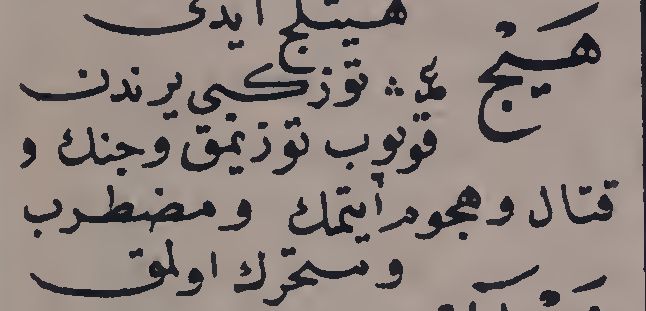 هيتلج ايدى
هَيْج
ع م توز كبى يرندن
قوپوب توزيمق وجنك و
قتال وهجوم ايتمك ومضطرب
ومتحرك اولمق